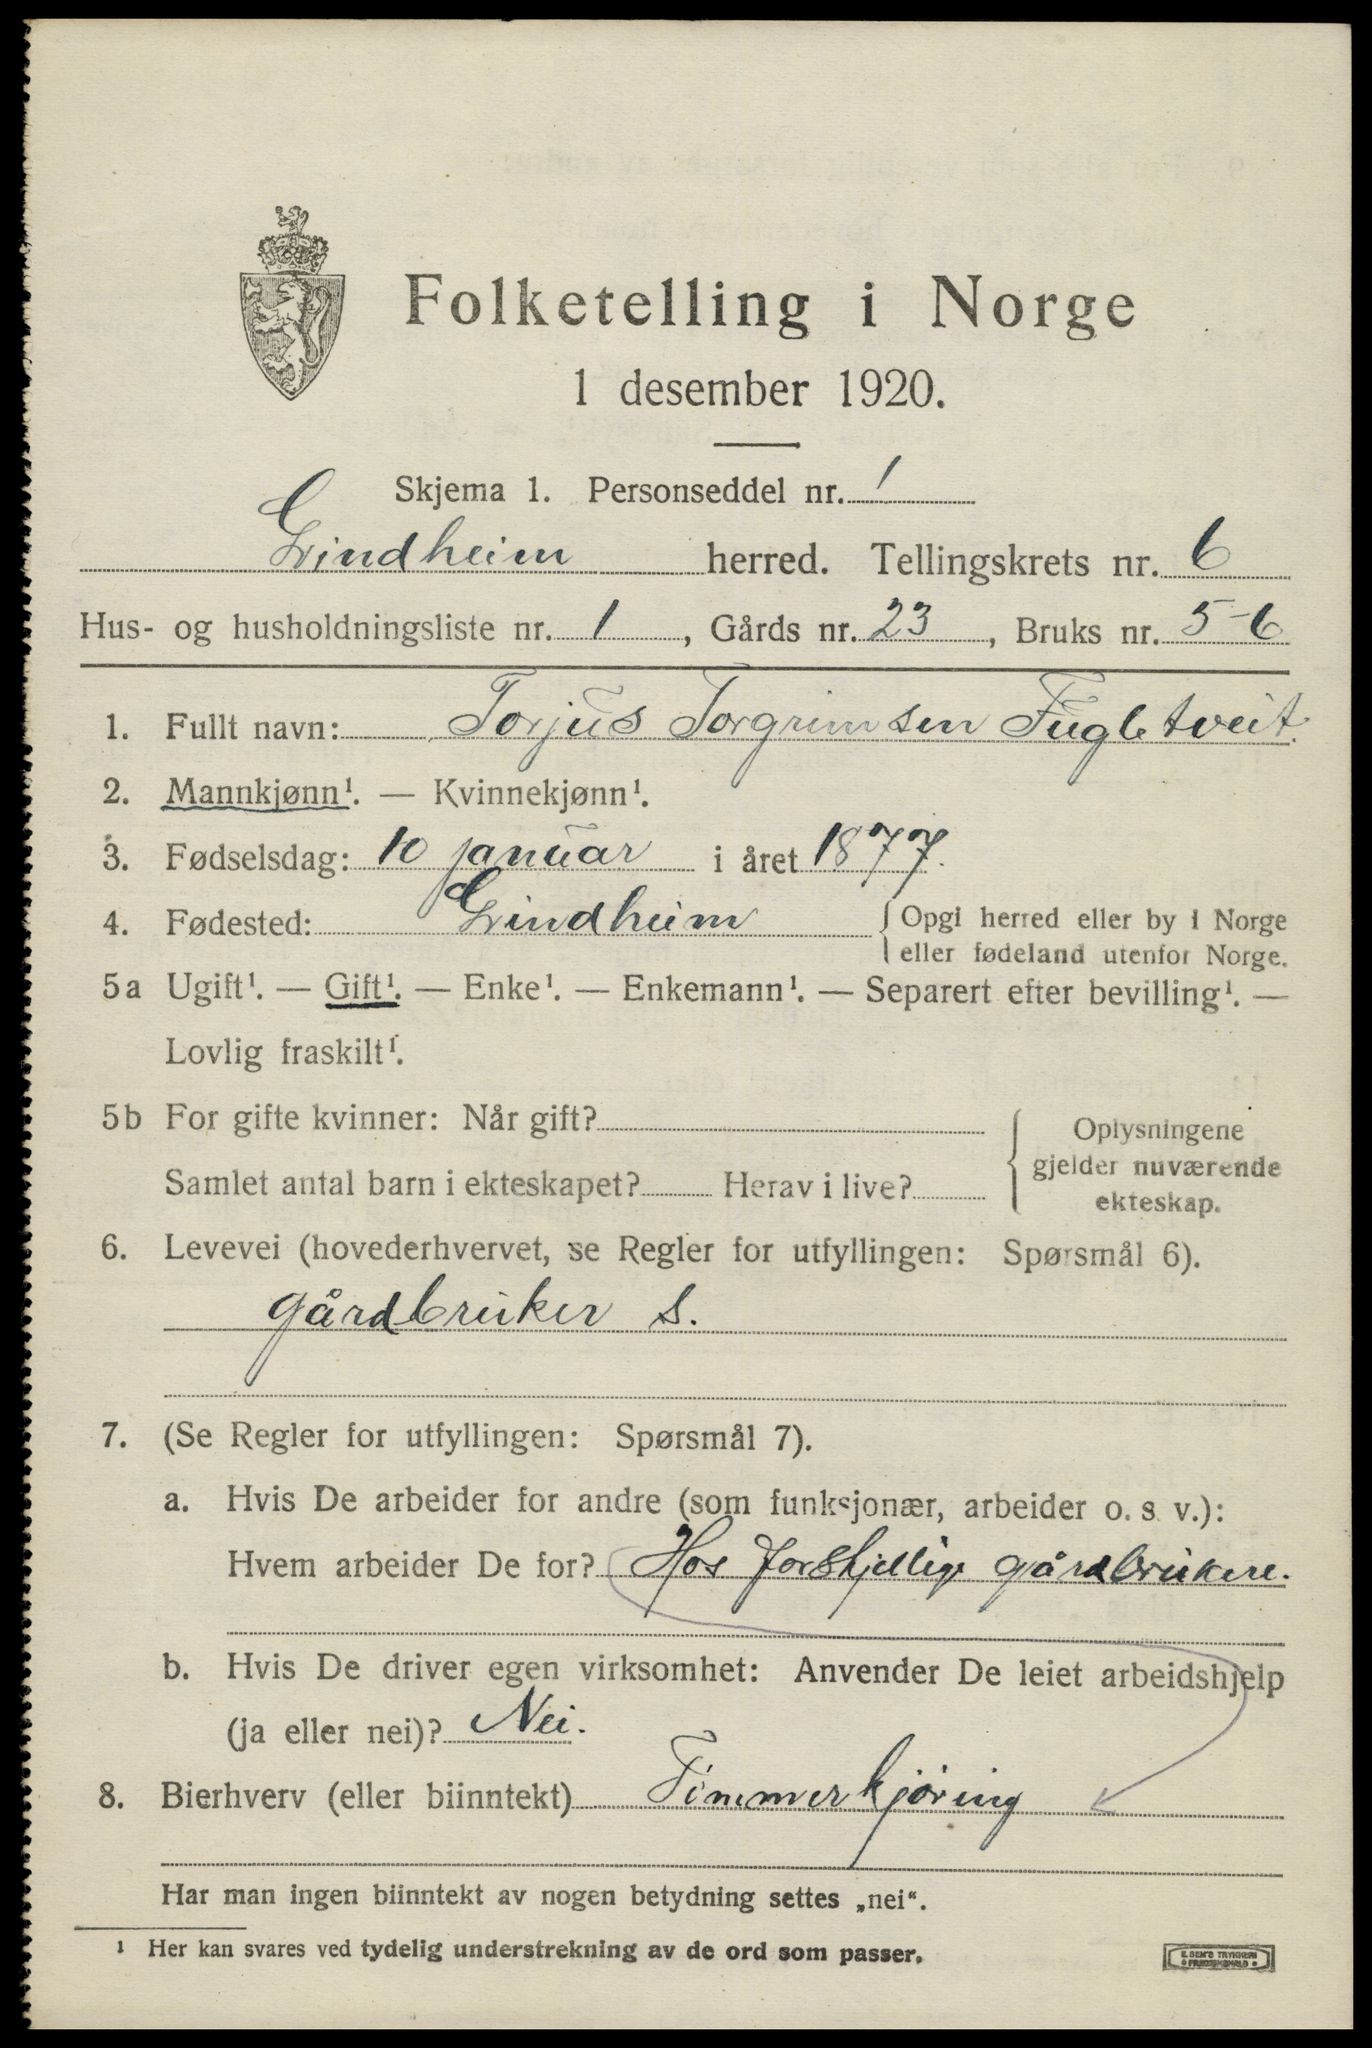 Folketelling i Norge
1 desember 1920.
Skjema 1. Personseddel nr. 1
Grindheim herred. Tellingskrets nr. 6
Hus- og husholdningsliste nr. 1, Gårds nr. 23, Bruks nr. 5-6
1. Fullt navn: Torjus Torgrimsen Fugletveit.
2. Mannkjønn¹. — Kvinnekjønn¹.
3. Fødselsdag: 10 januar i året 1877.
4. Fødested: Grindheim {Opgi herred eller by i Norge
eller fødeland utenfor Norge.
5a Ugift¹. — Gift¹. — Enke¹. — Enkemann¹. — Separert efter bevilling¹. —
Lovlig fraskilt¹.
5b For gifte kvinner: Når gift? { Oplysningene
gjelder nuværende
Samlet antal barn i ekteskapet? Herav i live?
ekteskap.
6. Levevei (hovederhvervet, se Regler for utfyllingen: Spørsmål 6).
gårdbruker S.
7. (Se Regler for utfyllingen: Spørsmål 7).
a. Hvis De arbeider for andre (som funksjonær, arbeider o. s. v.):
Hvem arbeider De for? Hos forskjellige gårdbrukere.
b. Hvis De driver egen virksomhet: Anvender De leiet arbeidshjelp
(ja eller nei)? Nei.
8. Bierhverv (eller biinntekt) Timmerkjöring
Har man ingen biinntekt av nogen betydning settes „nei“.
¹ Her kan svares ved tydelig understrekning av de ord som passer.